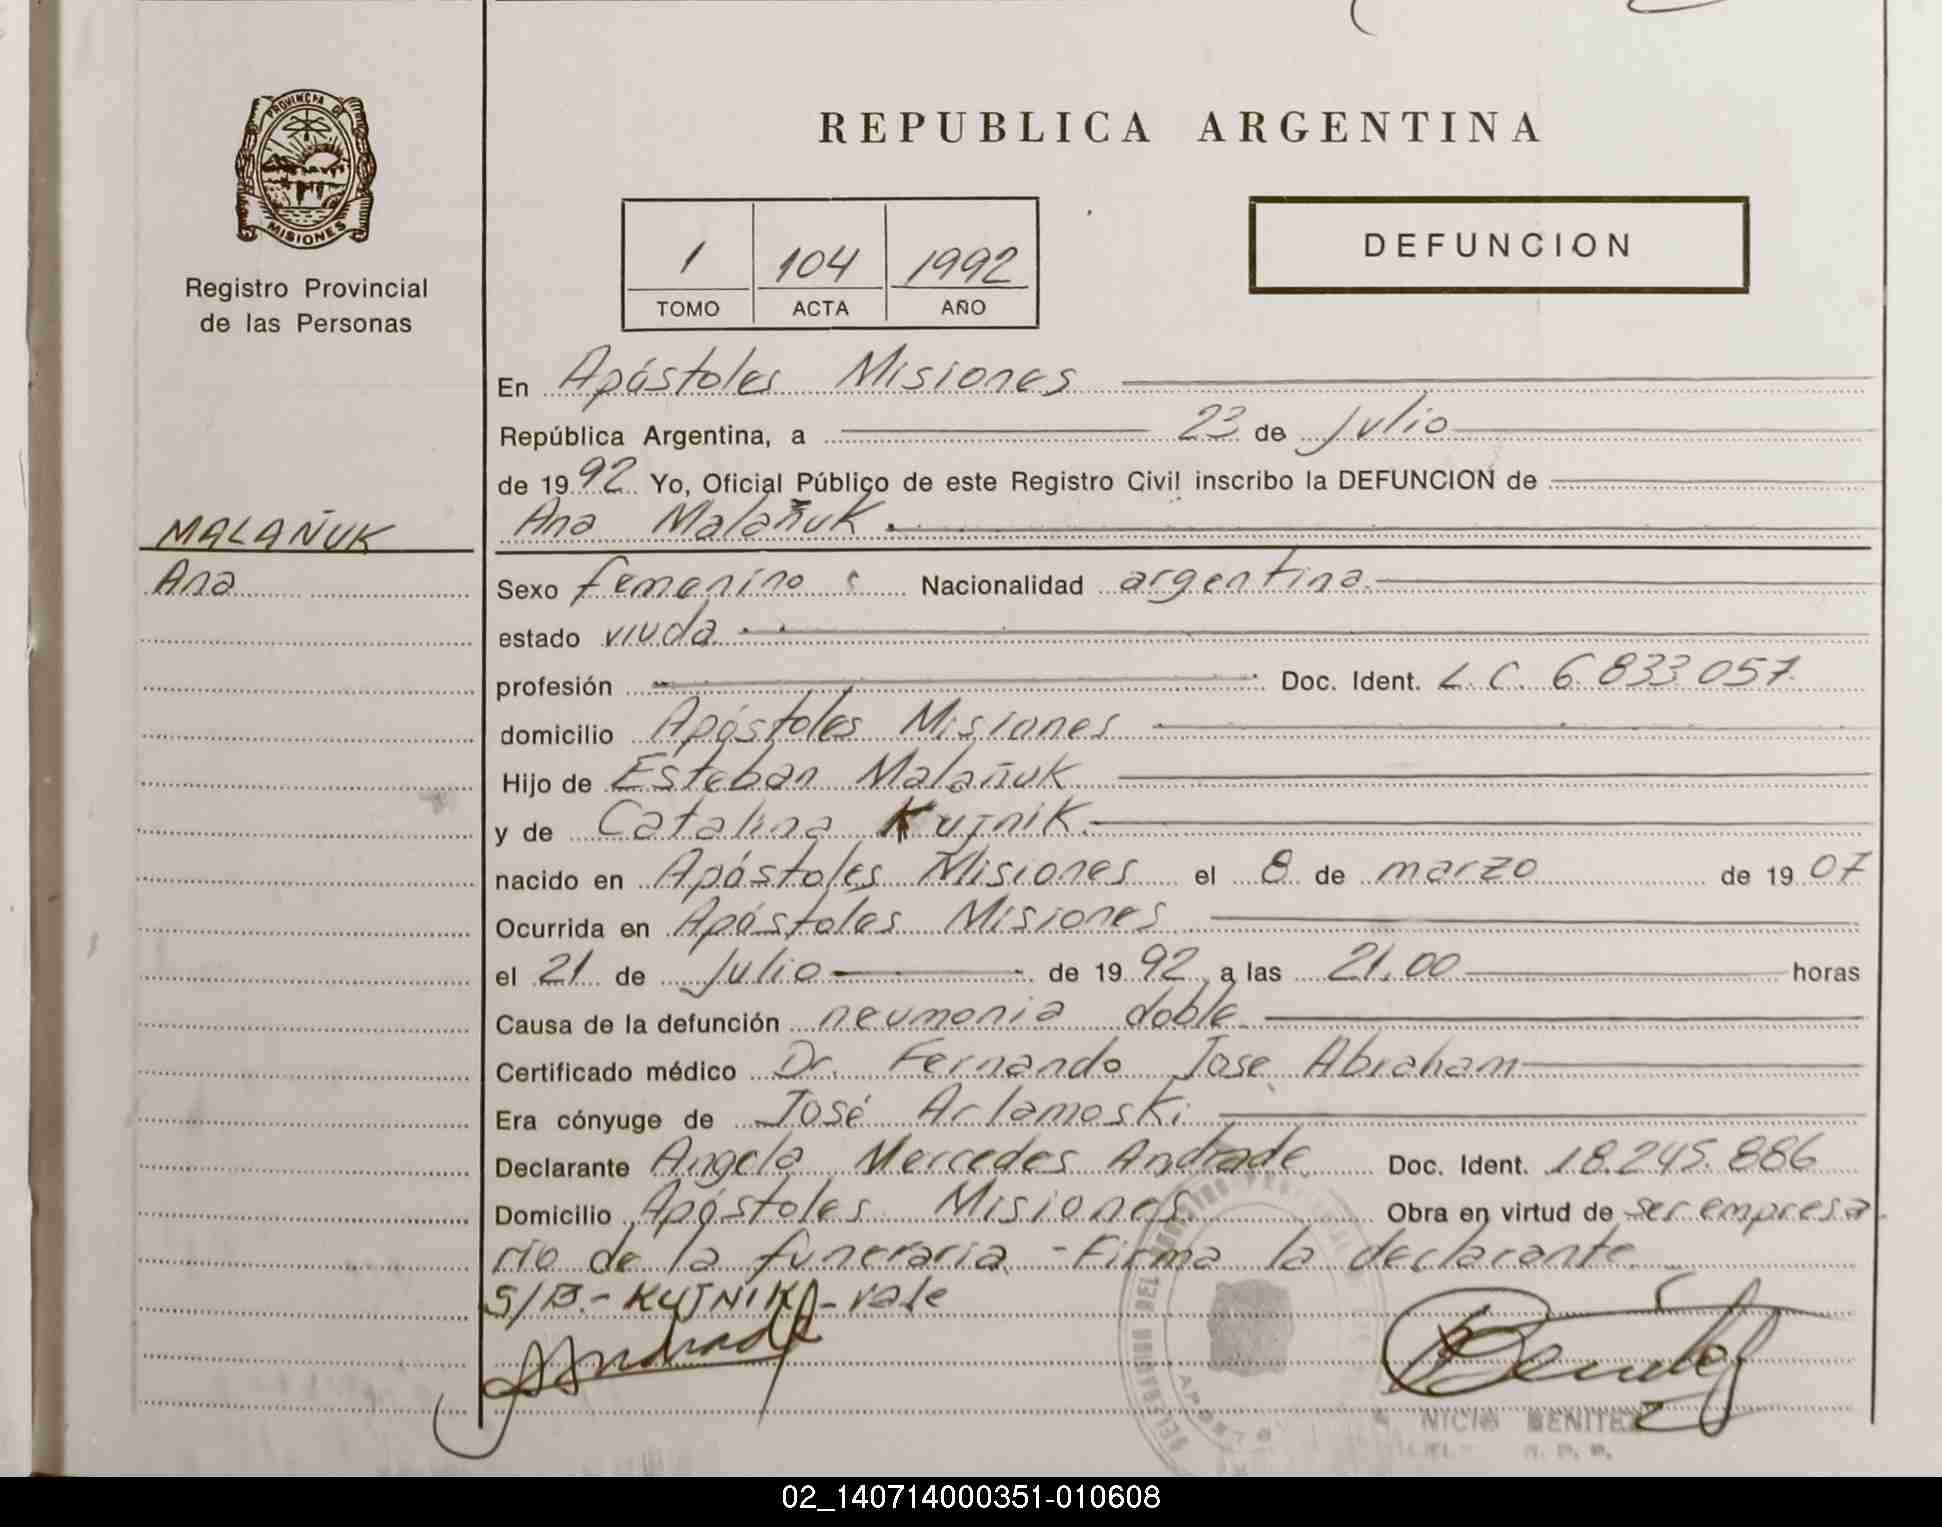 PROVINCIA DE
MISIONES
Registro Provincial
de las Personas
MALAÑUK
Ana
REPUBLICA ARGENTINA
1 104 1992
TOMO ACTA AÑO
DEFUNCION
En Apóstoles Misiones
República Argentina, a 23 de Julio
de 1992 Yo, Oficial Público de este Registro Civil inscribo la DEFUNCION de
Ana Malañuk.
Sexo femenino Nacionalidad argentina
estado viuda
profesión Doc. Ident. L.C. 6.833.057
domicilio Apóstoles Misiones
Hijo de Esteban Malañuk
y de Catalina Kujnik
nacido en Apóstoles Misiones el 8 de marzo de 1907
Ocurrida en Apóstoles Misiones
el 21 de Julio de 1992, a las 21.00 horas
Causa de la defunción neumonia doble
Certificado médico Dr. Fernando Jose Abraham
Era cónyuge de José Arlamoski
Declarante Angela Mercedes Andrade Doc. Ident. 18.245.886
Domicilio Apóstoles Misiones Obra en virtud de ser empresa
rio de la funeraria - Firma la declarante
S/B.- KUJNIK - vale
Andrade
Benitez
NICIA BENITEZ
02_140714000351-010608